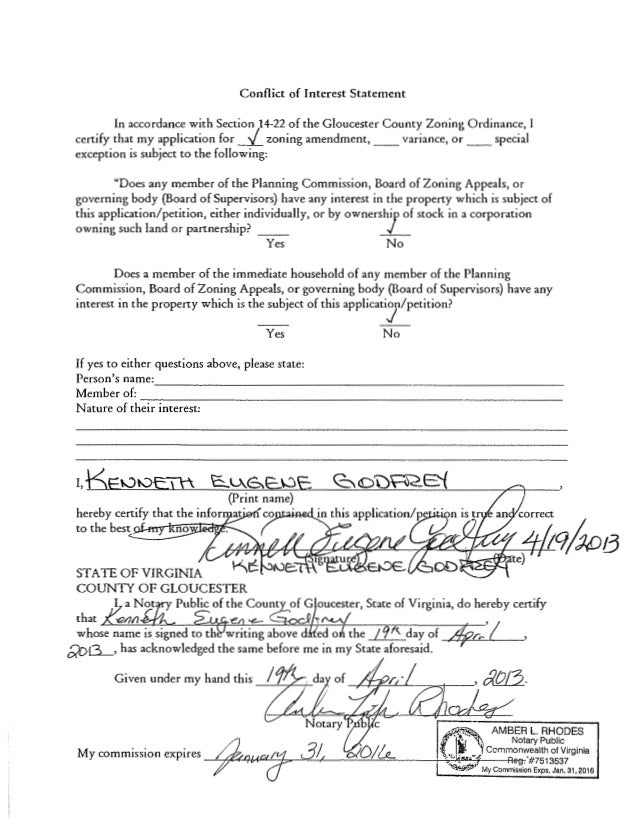 Conflict of Interest Statement
In accordance with Section 14-22 of the Gloucester County Zoning Ordinance, I
certify that my application for √ zoning amendment, ____ variance, or ____ special
exception is subject to the following:
"Does any member of the Planning Commission, Board of Zoning Appeals, or
governing body (Board of Supervisors) have any interest in the property which is subject of
this application/petition, either individually, or by ownership of stock in a corporation
owning such land or partnership? ____ √
Yes No
Does a member of the immediate household of any member of the Planning
Commission, Board of Zoning Appeals, or governing body (Board of Supervisors) have any
interest in the property which is the subject of this application/petition?
____ √
Yes No
If yes to either questions above, please state:
Person's name:
Member of:
Nature of their interest:
I, KENNETH EUGENE GODFREY,
(Print name)
hereby certify that the information contained in this application/petition is true and correct
to the best of my knowledge.
Kenneth Eugene Godfrey 4/19/2013
(Signature) (Date)
KENNETH EUGENE GODFREY
STATE OF VIRGINIA
COUNTY OF GLOUCESTER
I, a Notary Public of the County of Gloucester, State of Virginia, do hereby certify
that Kenneth Eugene Godfrey,
whose name is signed to the writing above dated on the 19th day of April,
2013, has acknowledged the same before me in my State aforesaid.
Given under my hand this 19th day of April, 2013.
Amber Rhodes
Notary Public
My commission expires January 31, 2016
AMBER L. RHODES
Notary Public
Commonwealth of Virginia
Reg. #7513537
My Commission Exps. Jan. 31, 2016